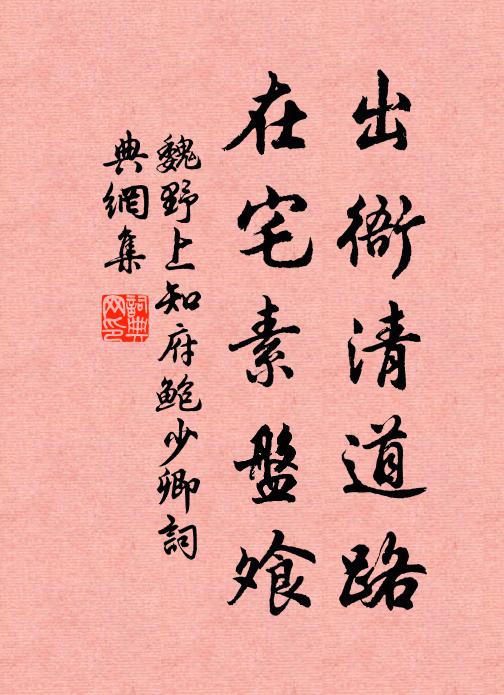 出衙清道路
在宅素盤飧
魏野上知府鮑少卿詞
典網集
詞典網印